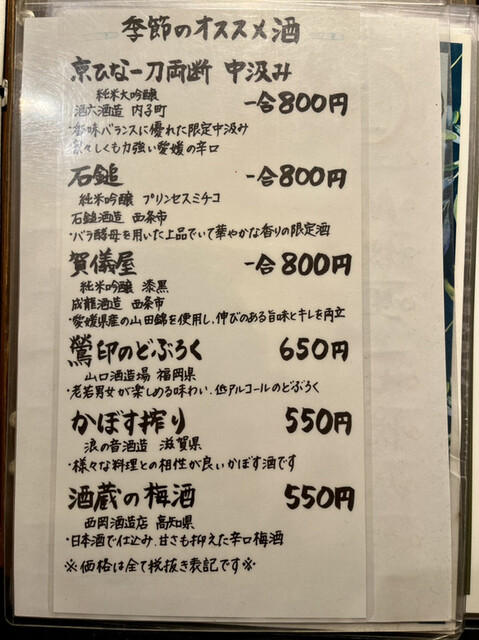 季節のオススメ酒
京ひな一刀両断 中汲み
純米大吟醸
一合800円
酒六酒造 内子町
・香味バランスに優れた限定中汲み
々しくも力強い愛媛の辛口
石鎚
一合800円
純米吟醸 プリンセスミチコ
石鎚酒造 西条市
・バラ酵母を用いた上品でいて華やかな香りの限定酒
賀儀屋
一合800円
純米吟醸 漆黒
成龍酒造 西条市
・愛媛県産の山田錦を使用し、伸びのある旨味とキレを両立
鶯印のどぶろく 650円
山口酒造場 福岡県
・老若男女が楽しめる味わい、低アルコールのどぶろく
かぼす搾り 550円
浪の音酒造 滋賀県
・様々な料理との相性が良いかぼす酒です
酒蔵の梅酒 550円
西岡酒造店 高知県
・日本酒で仕込み、甘さも抑えた辛口梅酒
※価格は全て税抜き表記です※